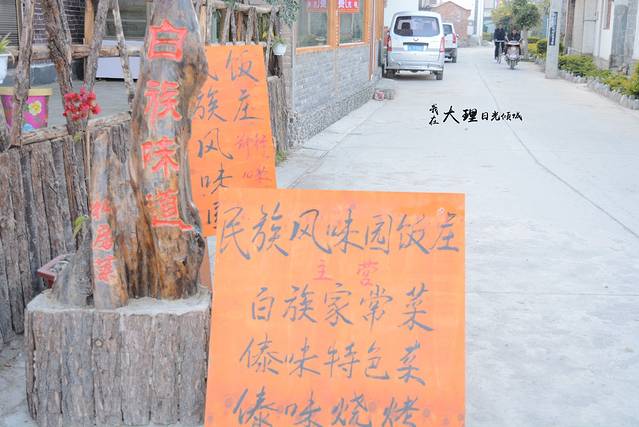 白族味道
私房菜
民族风味园饭庄
主营
白族家常菜
傣味特色菜
傣味烧烤
饭庄
民族风味园
我在大理日光倾城